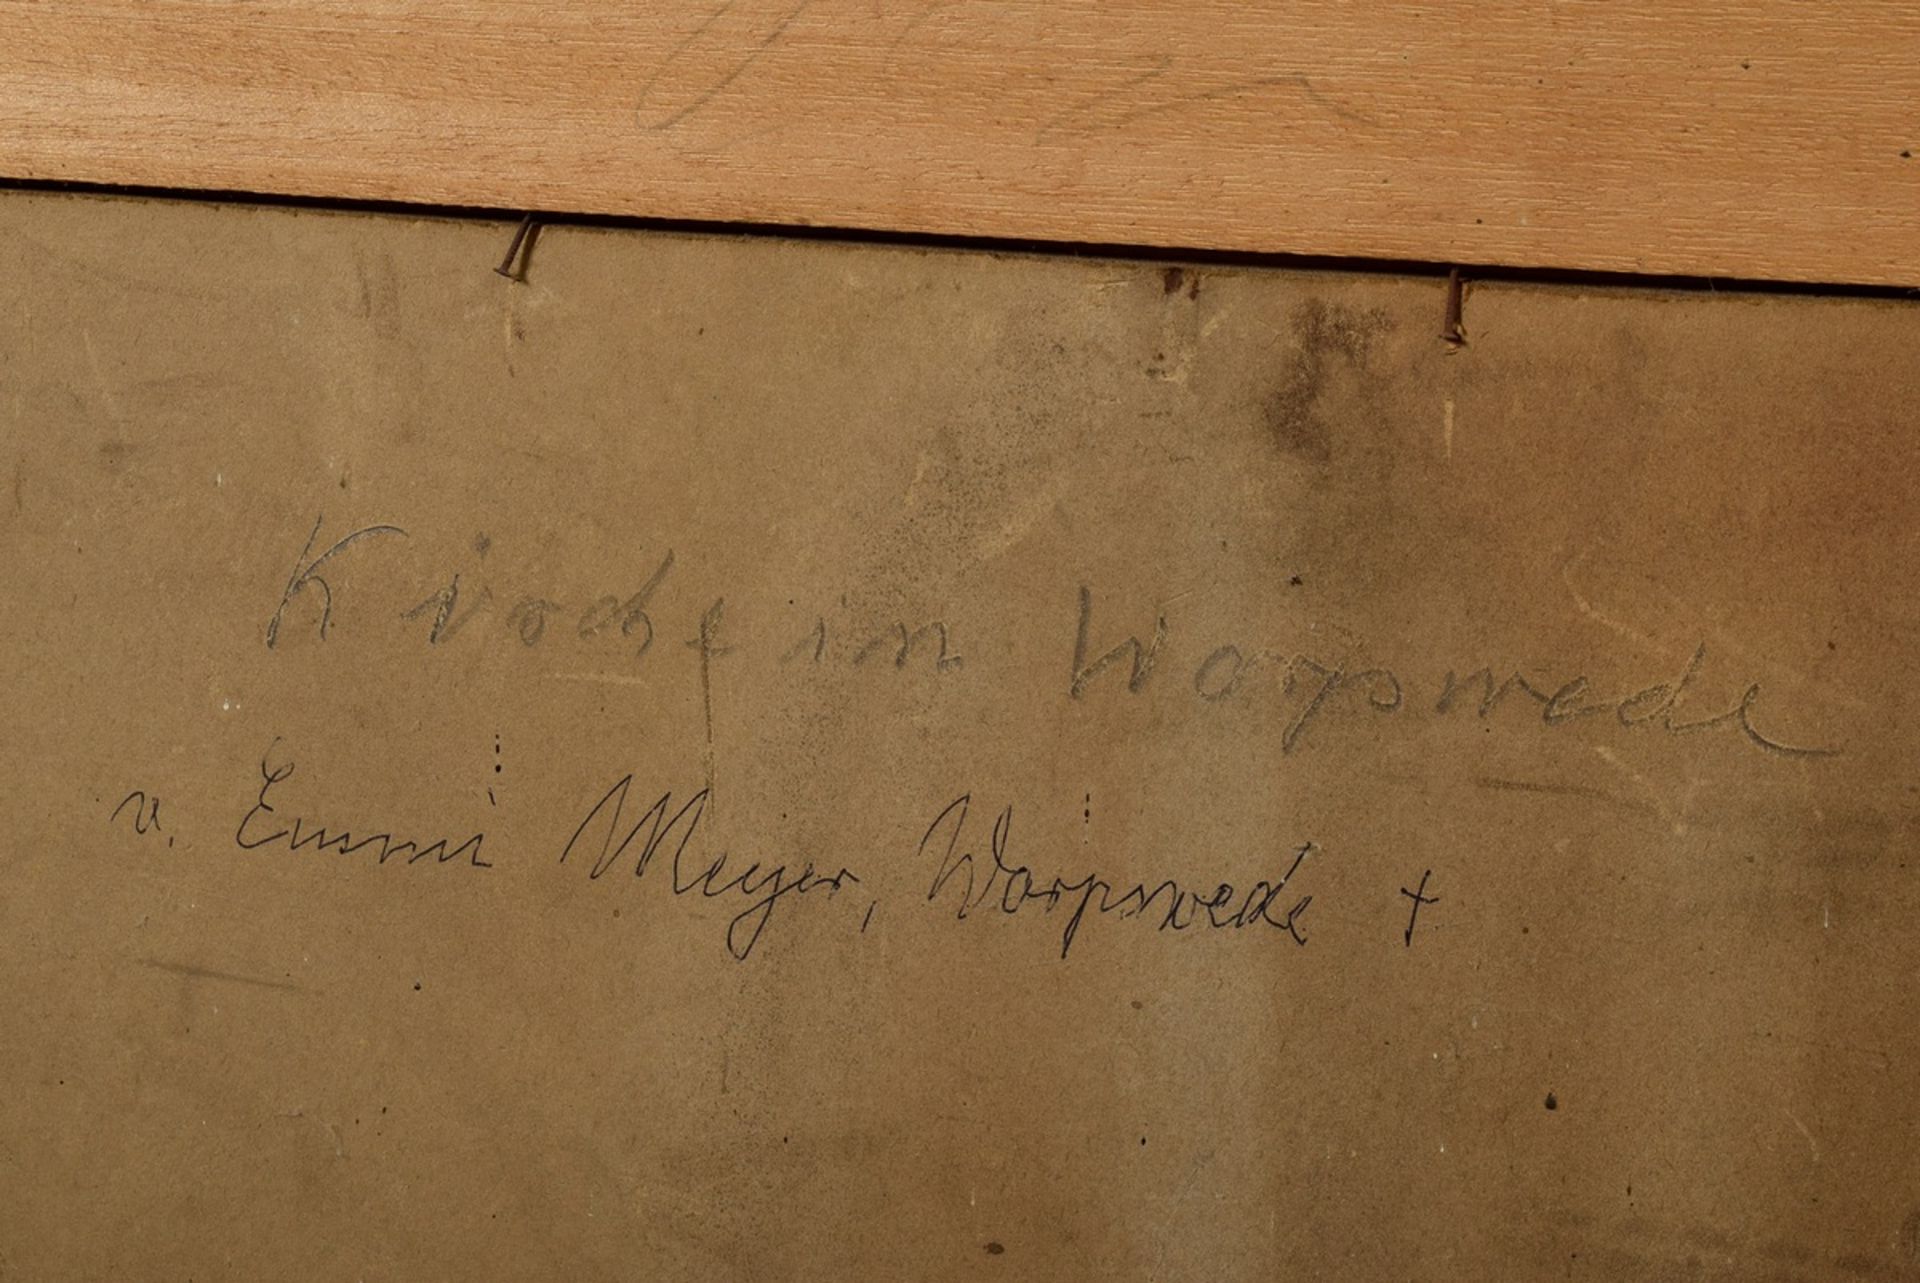 Kirche in Worpswede
v. Emmi Meyer, Worpswede +